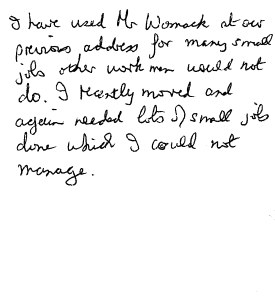 I have used Mr Womack at our
previous address for many small
jobs other work men would not
do. I recently moved and
again needed lots of small jobs
done which I could not
manage.